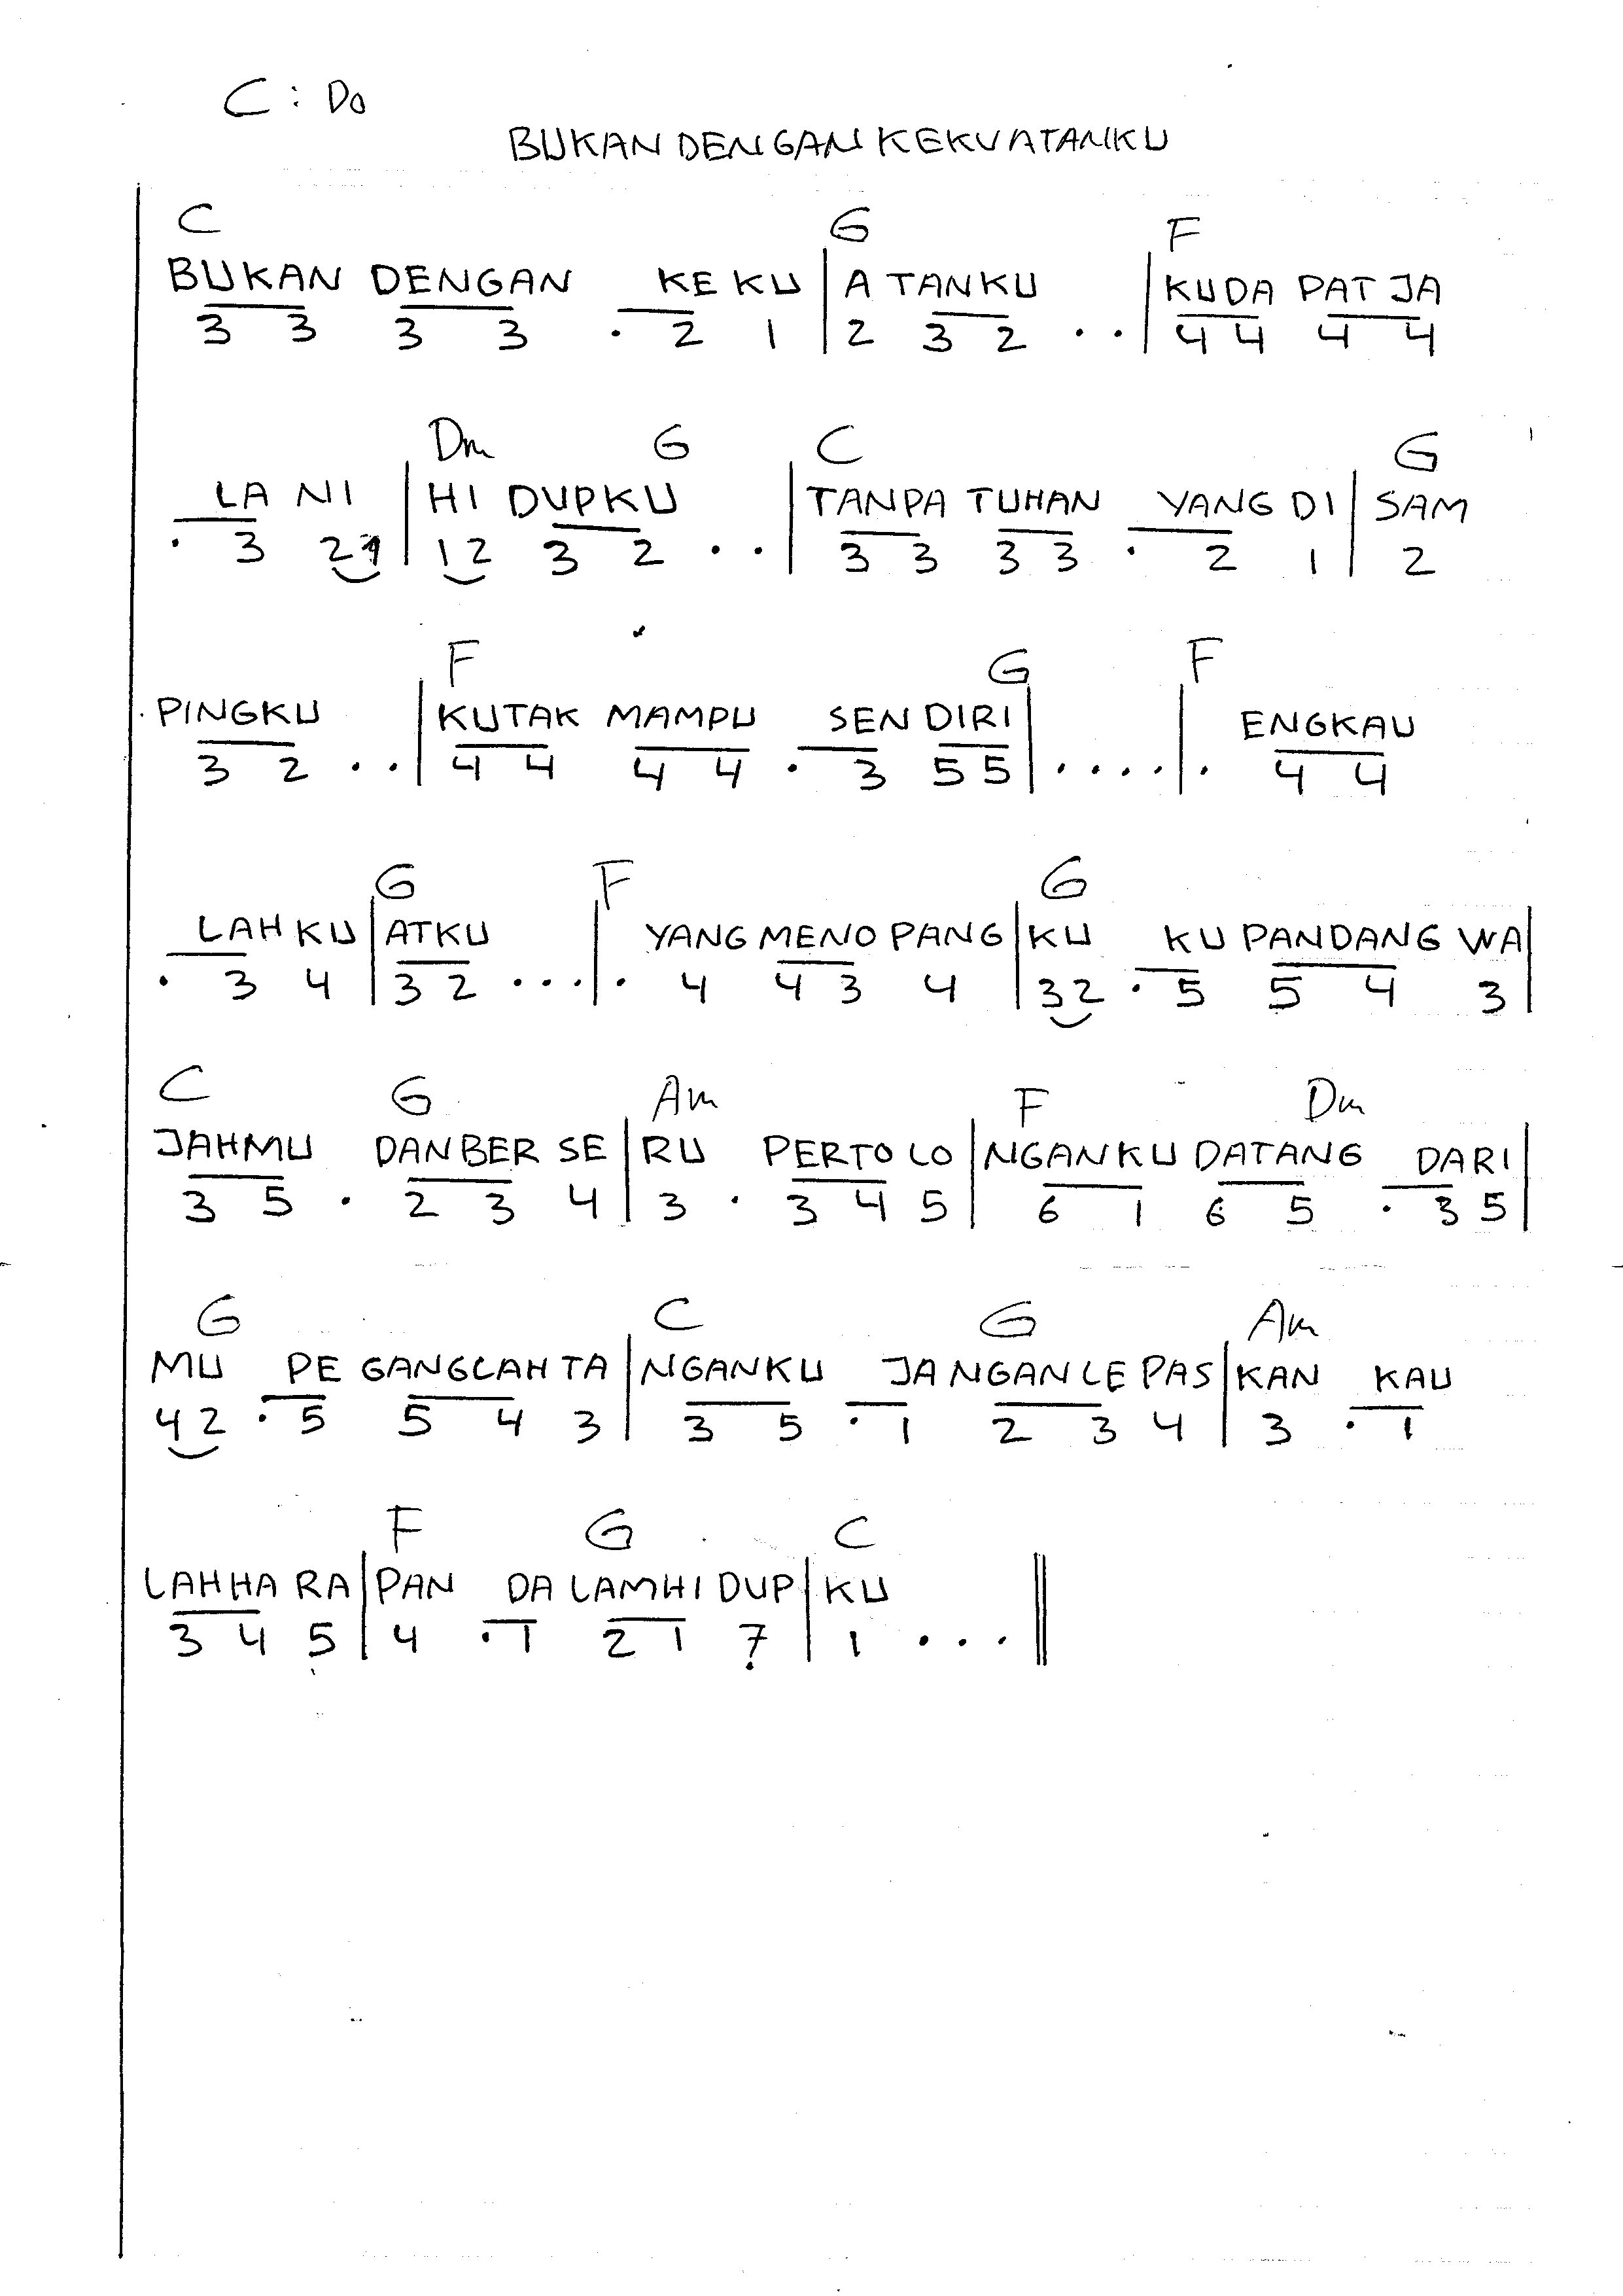 C : Do
BUKAN DENGAN KEKUATANKU
C G F
BUKAN DENGAN KE KU | A TANKU | KUDA PAT JA
3 3 3 3 . 2 1 | 2 3 2 . . | 4 4 4 4
Dm G C G
LA NI | HI DUPKU | TANPA TUHAN YANG DI | SAM
. 3 21 | 12 3 2 . . | 3 3 3 3 . 2 1 | 2
F G F
PINGKU | KUTAK MAMPU SEN DIRI | | ENGKAU
3 2 . . | 4 4 4 4 . 3 5 5 | . . . . | . 4 4
G F G
LAH KU | ATKU | YANG MENO PANG | KU KU PANDANG WA |
. 3 4 | 3 2 . . . | . 4 4 3 4 | 32 . 5 5 4 3 |
C G Am F Dm
JAHMU DAN BER SE | RU PERTO LO | NGANKU DATANG DARI |
3 5 . 2 3 4 | 3 . 3 4 5 | 6 1 6 5 . 3 5 |
G C G Am
MU PE GANGLAH TA | NGANKU JA NGAN LE PAS | KAN KAU
42 . 5 5 4 3 | 3 5 . 1 2 3 4 | 3 . 1
F G C
LAH HA RA | PAN DA LAM HI DUP | KU ||
3 4 5 | 4 . 1 2 1 7̣ | 1 . . . ||